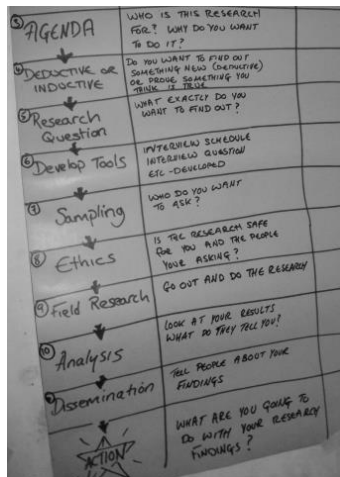 ③ AGENDA
WHO IS THIS RESEARCH
FOR? WHY DO YOU WANT
TO DO IT?
④ DEDUCTIVE OR
INDUCTIVE
DO YOU WANT TO FIND OUT
SOMETHING NEW (DEDUCTIVE)
OR PROVE SOMETHING YOU
THINK IS TRUE
⑤ Research
Question
WHAT EXACTLY DO YOU
WANT TO FIND OUT?
⑥ Develop Tools
INTERVIEW SCHEDULE
INTERVIEW QUESTION
ETC - DEVELOPED
⑦ Sampling
WHO DO YOU WANT
TO ASK?
⑧ Ethics
IS THE RESEARCH SAFE
FOR YOU AND THE PEOPLE
YOUR ASKING?
⑨ Field Research
GO OUT AND DO THE RESEARCH
⑩ Analysis
LOOK AT YOUR RESULTS
WHAT DO THEY TELL YOU?
Dissemination
TELL PEOPLE ABOUT YOUR
FINDINGS
ACTION
WHAT ARE YOU GOING TO
DO WITH YOUR RESEARCH
FINDINGS?